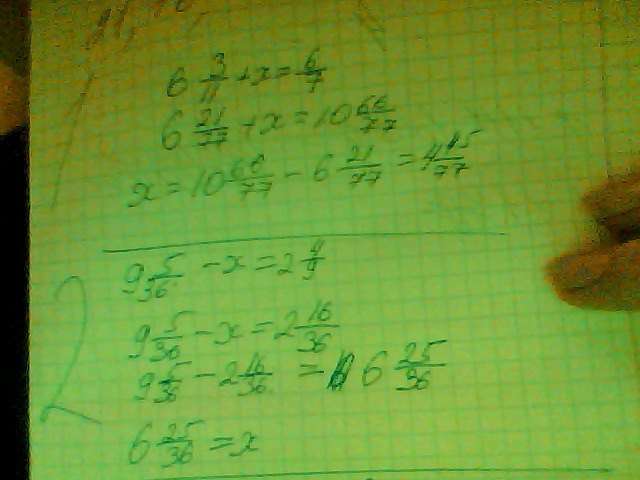 6 3/11 + x = 6/7
6 21/77 + x = 10 66/77
x = 10 66/77 - 6 21/77 = 4 45/77
9 5/36 - x = 2 4/9
2
9 5/36 - x = 2 16/36
9 5/36 - 2 16/36 = 6 25/36
6 25/36 = x